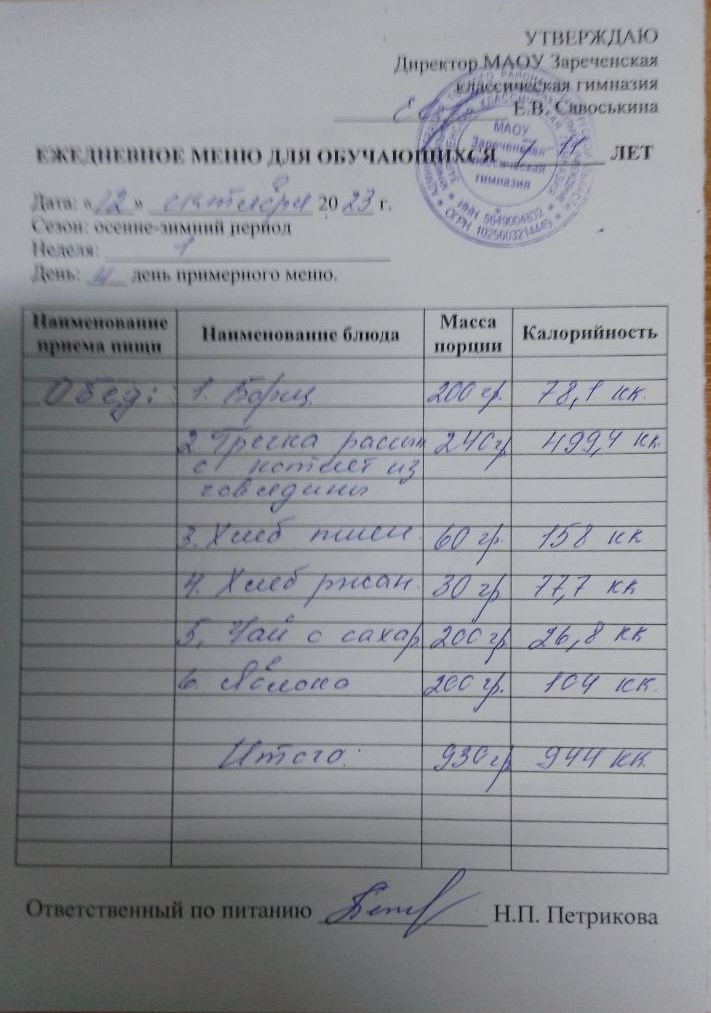 УТВЕРЖДАЮ
Директор МАОУ Зареченская
классическая гимназия
Е.В. Савоськина
ЕЖЕДНЕВНОЕ МЕНЮ ДЛЯ ОБУЧАЮЩИХСЯ 7-11 ЛЕТ
МАОУ
Зареченская
классическая
гимназия
ИНН 5649004832
ОГРН 1025603214445
Дата: «12» октября 2023 г.
Сезон: осенне-зимний период
Неделя: 1
День: 4 день примерного меню.
Наименование приема пищи Наименование блюда Масса порции Калорийность
Обед: 1. Борщ 200 гр. 78,1 кк.
2. Гречка рассып 240 гр 499,4 кк.
с котлет из
говядины
3. Хлеб пшен. 60 гр. 158 кк
4. Хлеб ржан. 30 гр 77,7 кк
5. Чай с сахар 200 гр 26,8 кк
6. Яблоко 200 гр. 104 кк.
Итого: 930 гр 944 кк.
Ответственный по питанию Н.П. Петрикова